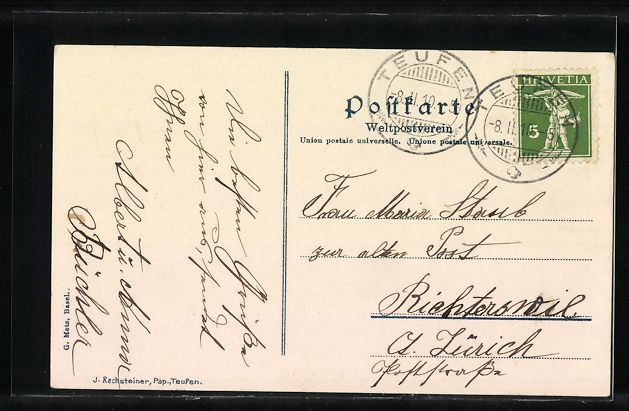 Die besten Grüße
von hier aus sendet
Ihnen
Albert u. Anna
Büchler
G. Metz, Basel.
J. Rechsteiner, Pap., Teufen.
Postkarte
Weltpostverein
Union postale universelle. Unione postale universale.
TEUFEN
-8.II.10
TEUFEN
-8.II.10
HELVETIA
5
Frau Maria Staub
zur alten Post
Richterswil
Ct. Zürich
Poststraße